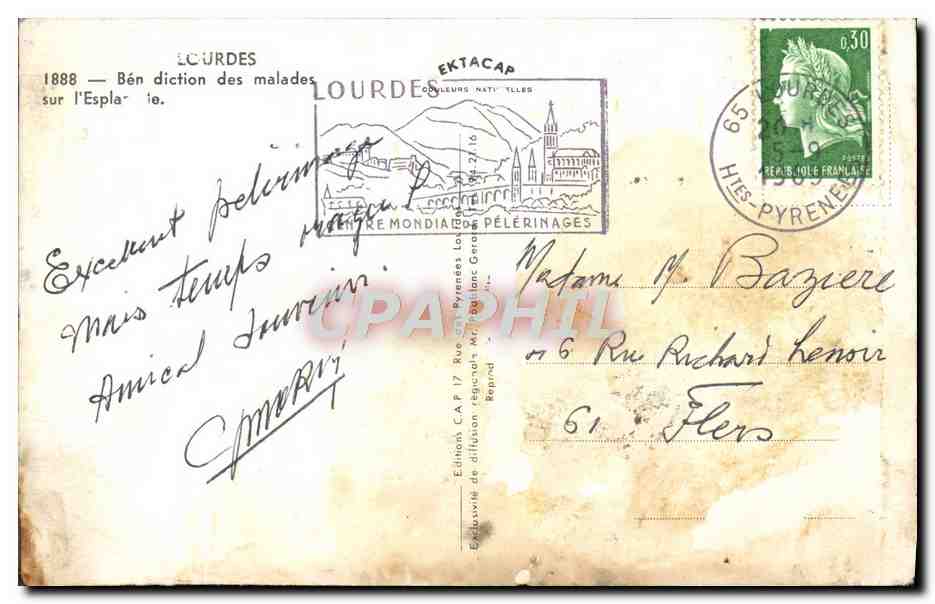 LOURDES
1888 — Bén diction des malades
sur l'Espla ie.
EKTACAP
COULEURS NATU ELLES
LOURDES
CENTRE MONDIAL DE PÉLERINAGES
0,30
POSTES
REPUBLIQUE FRANCAISE
65 LOURDES
20 H
5-9
1969
HTES-PYRENEES
Excellent pélerinage
mais temps orageux
Amical souvenir
Editions C.A.P 17 Rue des Pyrénées Lourdes
Exclusivité de diffusion régionale Mr. Poublanc Gérard
Reprod
CPAPHIL
Madame M. Baziere
6 Rue Richard Lenoir
61 Flers